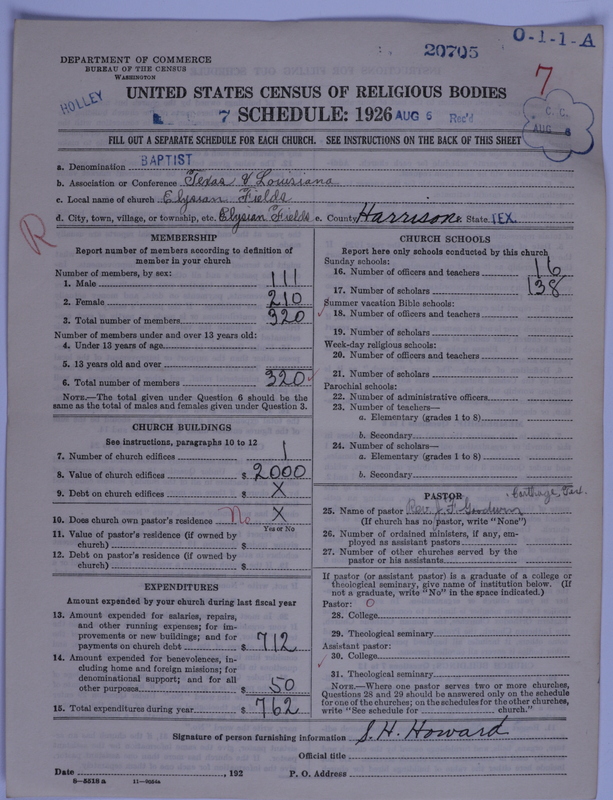 O-1-1-A
20705
DEPARTMENT OF COMMERCE
BUREAU OF THE CENSUS
WASHINGTON
7
HOLLEY
UNITED STATES CENSUS OF RELIGIOUS BODIES
7 SCHEDULE: 1926 AUG 6 Rec'd
C. C.
AUG 8
FILL OUT A SEPARATE SCHEDULE FOR EACH CHURCH. SEE INSTRUCTIONS ON THE BACK OF THIS SHEET
a. Denomination BAPTIST
b. Association or Conference Texas & Louisiana
c. Local name of church Elysian Fields
d. City, town, village, or township, etc. Elysian Fields e. County Harrison State TEX.
R
MEMBERSHIP
Report number of members according to definition of
member in your church
Number of members, by sex:
1. Male 111
2. Female 210
3. Total number of members 320
Number of members under and over 13 years old:
4. Under 13 years of age
5. 13 years old and over
6. Total number of members 320
NOTE.—The total given under Question 6 should be the
same as the total of males and females given under Question 3.
CHURCH BUILDINGS
See instructions, paragraphs 10 to 12
7. Number of church edifices 1
8. Value of church edifices $ 2000
9. Debt on church edifices $ X
10. Does church own pastor's residence No X
Yes or No
11. Value of pastor's residence (if owned by
church) $
12. Debt on pastor's residence (if owned by
church) $
EXPENDITURES
Amount expended by your church during last fiscal year
13. Amount expended for salaries, repairs,
and other running expenses; for im-
provements or new buildings; and for
payments on church debt $ 712
14. Amount expended for benevolences, in-
cluding home and foreign missions; for
denominational support; and for all
other purposes $ 50
15. Total expenditures during year $ 762
CHURCH SCHOOLS
Report here only schools conducted by this church
Sunday schools:
16. Number of officers and teachers 16
17. Number of scholars 138
Summer vacation Bible schools:
18. Number of officers and teachers
19. Number of scholars
Week-day religious schools:
20. Number of officers and teachers
21. Number of scholars
Parochial schools:
22. Number of administrative officers
23. Number of teachers—
a. Elementary (grades 1 to 8)
b. Secondary
24. Number of scholars—
a. Elementary (grades 1 to 8)
b. Secondary
PASTOR Carthage, Tex.
25. Name of pastor Rev. J. F. Goodwin
(If church has no pastor, write "None")
26. Number of ordained ministers, if any, em-
ployed as assistant pastors
27. Number of other churches served by the
pastor or his assistants
If pastor (or assistant pastor) is a graduate of a college or
theological seminary, give name of institution below. (If
not a graduate, write "No" in the space indicated.)
Pastor: 0
28. College
29. Theological seminary
Assistant pastor:
30. College
31. Theological seminary
NOTE.—Where one pastor serves two or more churches,
Questions 28 and 29 should be answered only on the schedule
for one of the churches; on the schedules for the other churches,
write "See schedule for church."
Signature of person furnishing information S. H. Howard
Official title
Date , 192 P. O. Address
8—5518 a